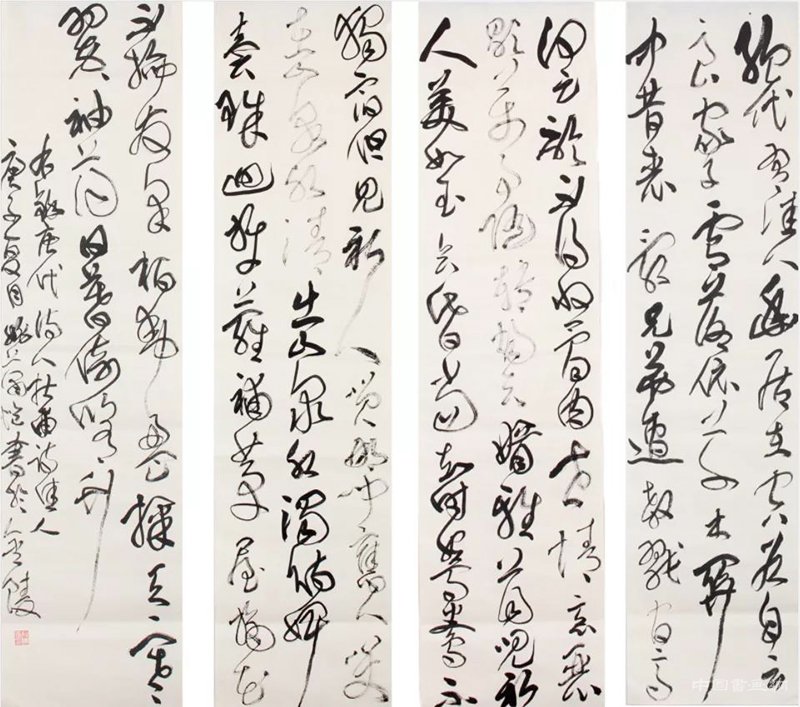 絕代有佳人幽居在空谷自云
良家子零落依草木關
中昔喪亂兄弟遭殺戮官高
何足論不得收骨肉世情惡衰
歇萬事隨轉燭夫婿輕薄兒新
人美如玉合昏尚知時鴛鴦不
獨宿但見新人笑那聞舊人哭
在山泉水清出山泉水濁侍婢
賣珠迴牽蘿補茅屋摘花
不插髮采柏動盈掬天寒
翠袖薄日暮倚脩竹
右錄唐代詩人杜甫詩佳人
庚子夏月書於金陵